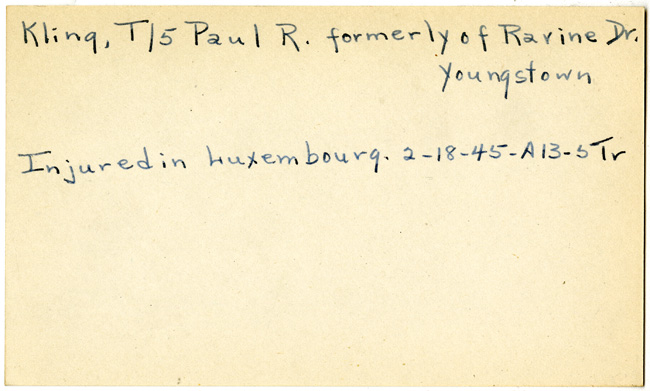 Kling, T/5 Paul R. formerly of Ravine Dr.
Youngstown
Injured in Luxembourg. 2-18-45-A13-5 Tr